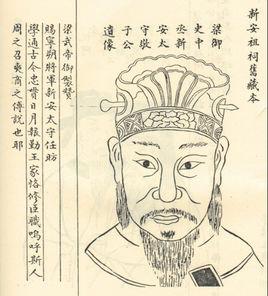 新安祖祠舊藏本
梁御
史中
丞新
安太
守敬
子公
遺像
梁武帝御製贊
賜寧朔將軍新安太守任昉
學通古今忠貫日月報勤王家恪修臣職嗚呼斯人
周之召奭商之傳說也耶